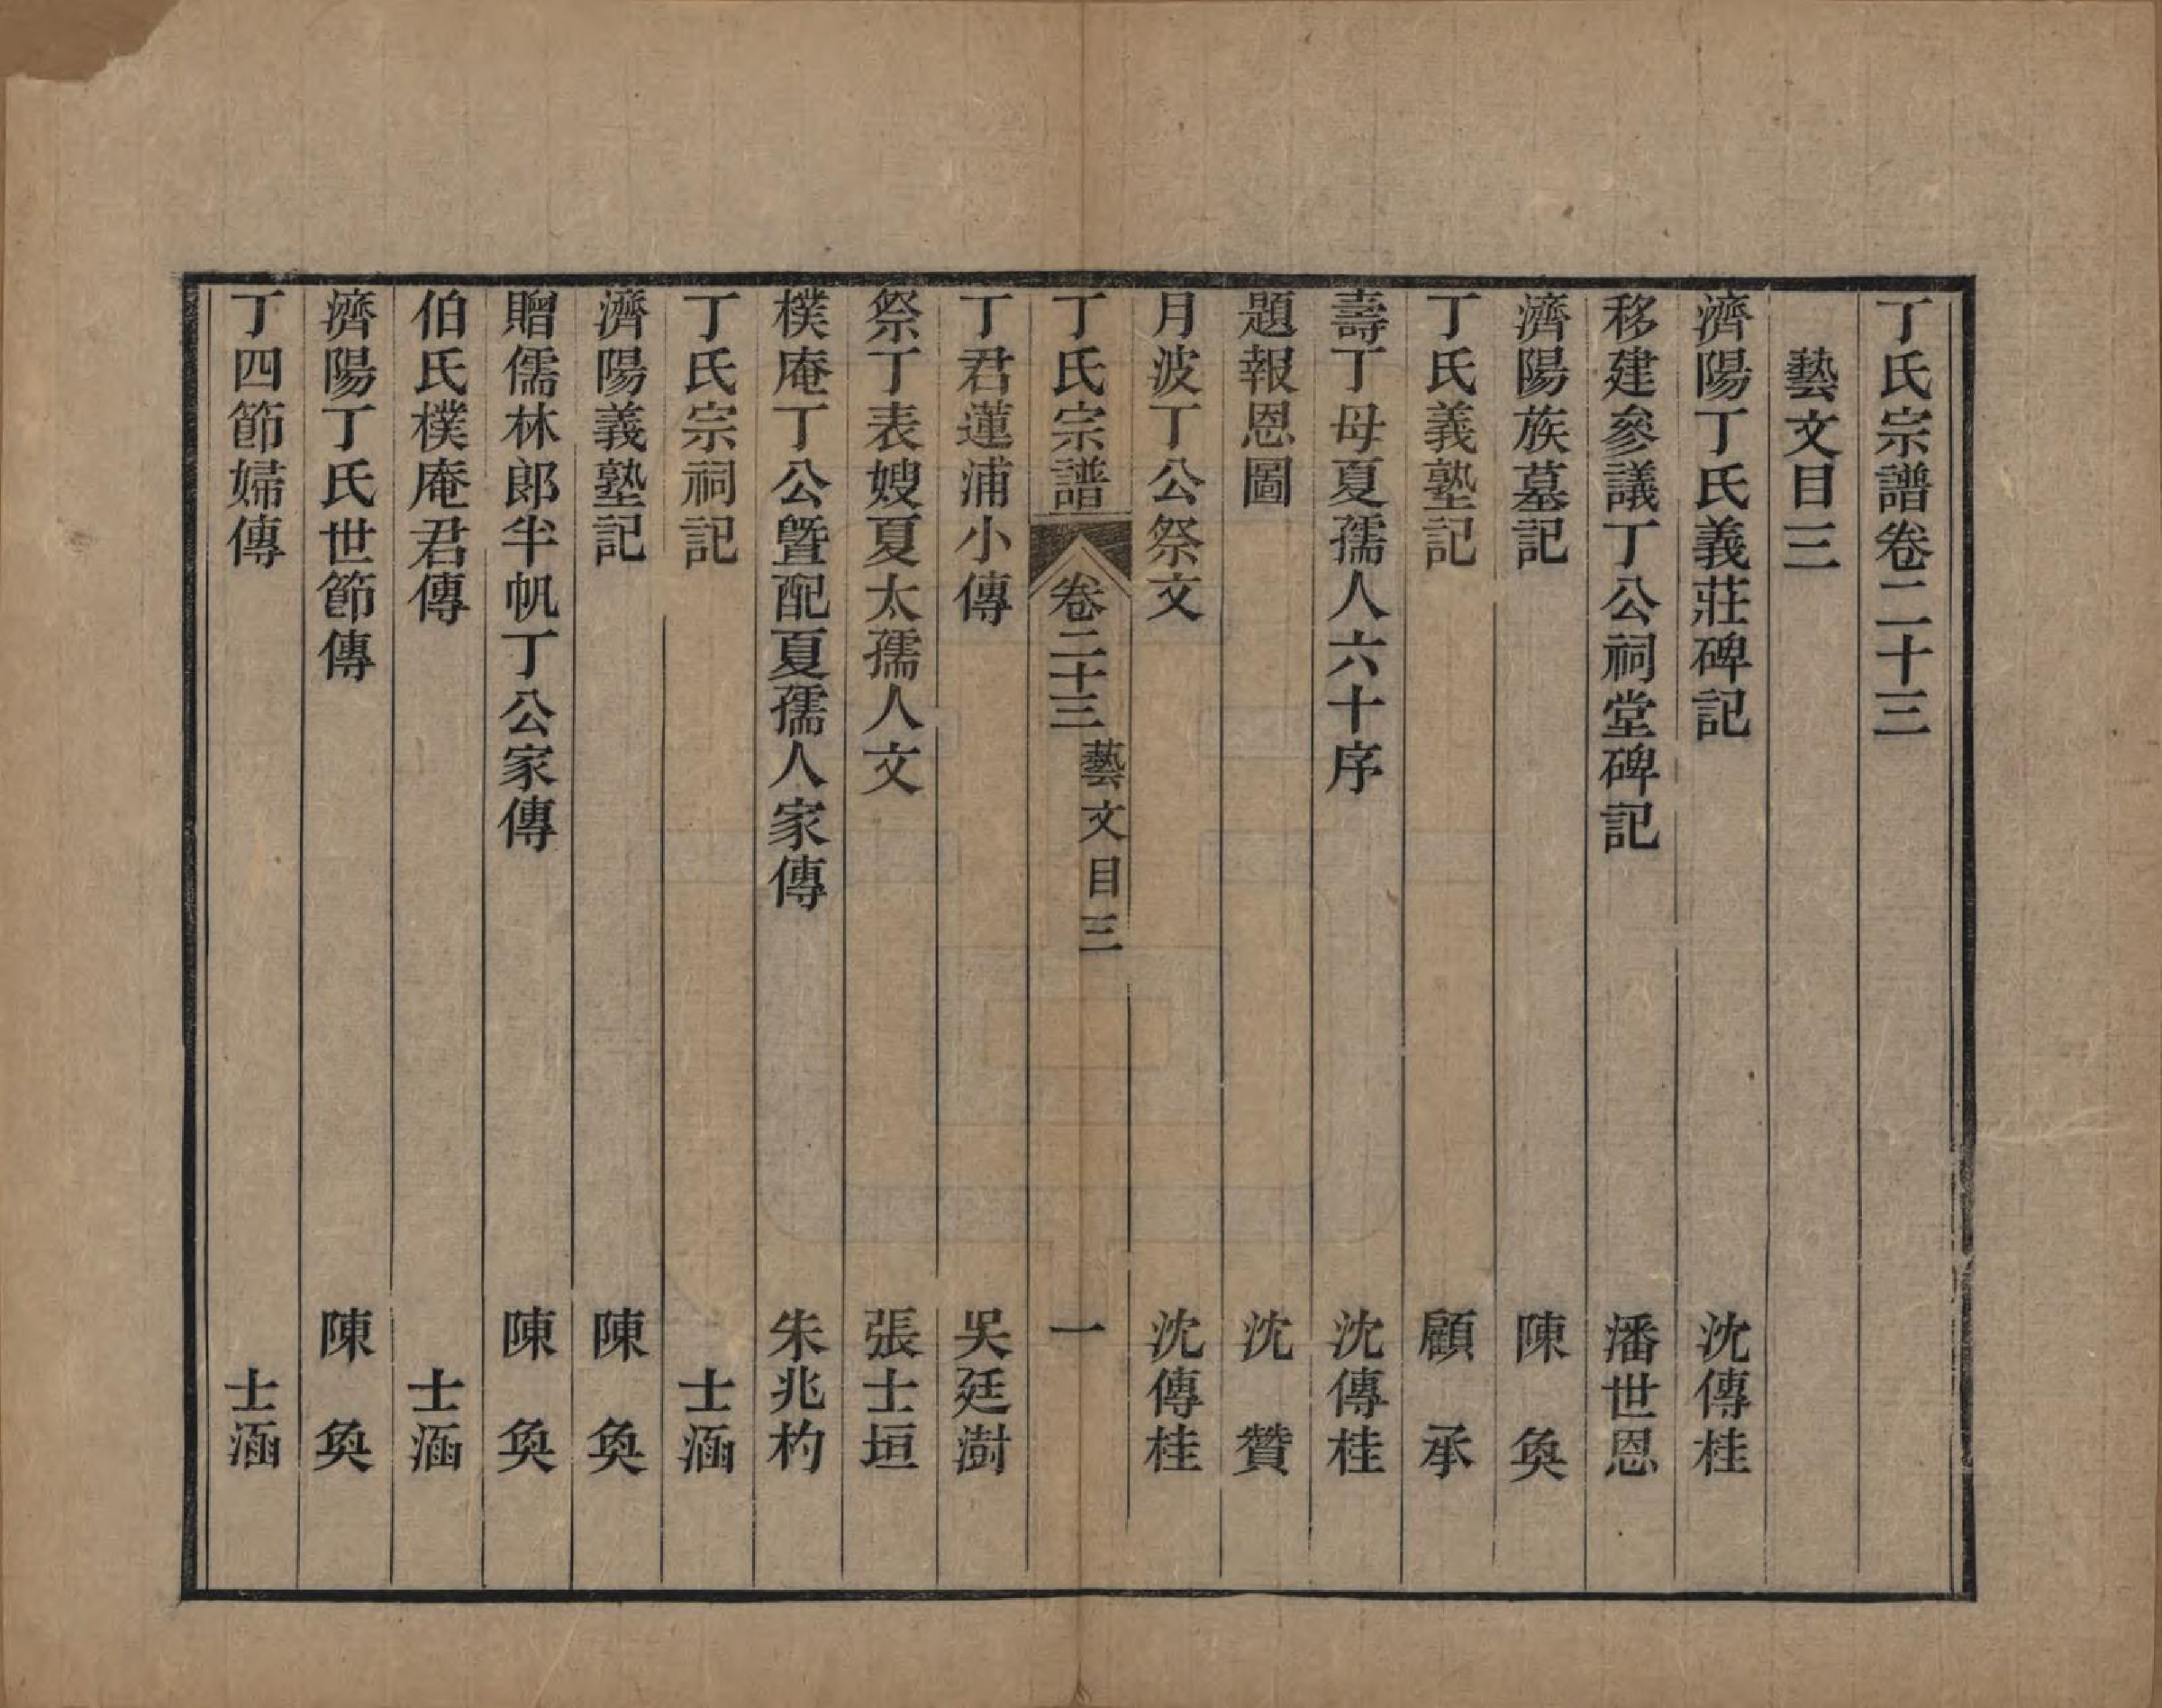 丁氏宗譜卷二十三
藝文目三
濟陽丁氏義莊碑記 沈傳桂
移建參議丁公祠堂碑記 潘世恩
濟陽族墓記 陳奐
丁氏義塾記 顧承
壽丁母夏孺人六十序 沈傳桂
題報恩圖 沈贊
月波丁公祭文 沈傳桂
丁氏宗譜 卷二十三 藝文目三 一
丁君蓮浦小傳 吳廷澍
祭丁表嫂夏太孺人文 張士垣
樸庵丁公曁配夏孺人家傳 朱兆杓
丁氏宗祠記 士涵
濟陽義塾記 陳奐
贈儒林郎半帆丁公家傳 陳奐
伯氏樸庵君傳 士涵
濟陽丁氏世節傳 陳奐
丁四節婦傳 士涵